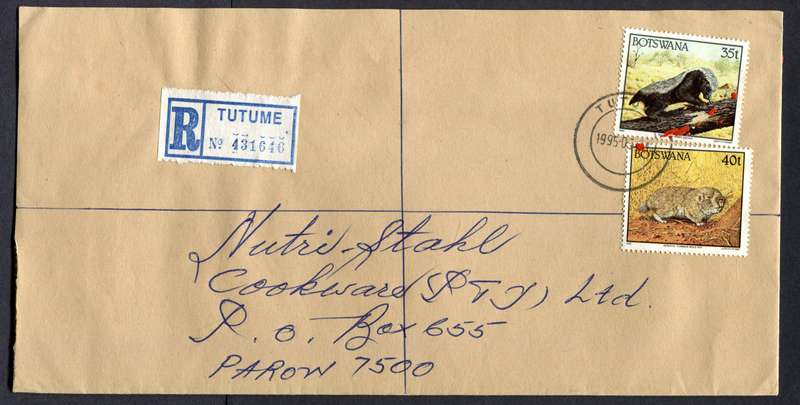 BOTSWANA
35t
TUTUME
R
Nº 431646
1995
BOTSWANA
40t
Nutri-Stahl
Cookward (PTY) Ltd.
P. O. Box 655
PAROW 7500